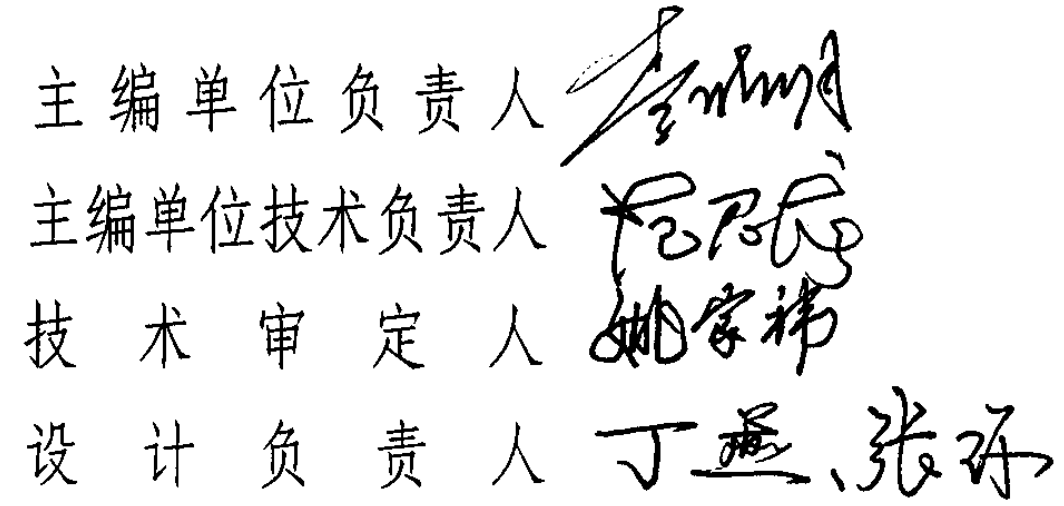 主编单位负责人 李
主编单位技术负责人
技术审定人 姚家祎
设计负责人 丁燕、张